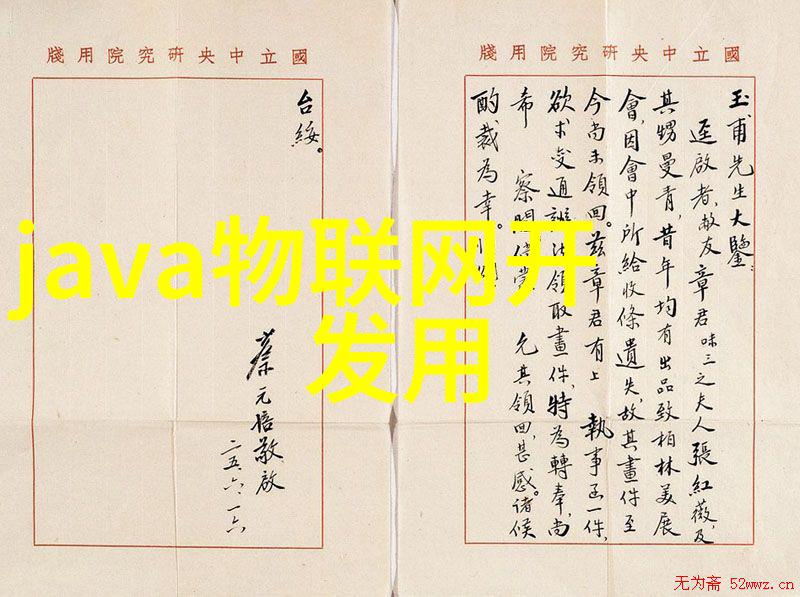 國立中央研究院用牋
玉甫先生大鑒：
逕啟者，敝友章君味三之夫人張紅薇，及
其甥曼青，昔年均有出品致柏林美展
會，因會中所給收條遺失，故其畫件至
今尚未領回。茲章君有上 執事函一件，
欲求變通辦法領取畫件，特為轉奉，尚
希 察 允其領回，甚感。諸候
酌裁為幸。
國立中央研究院用牋
台綏。
蔡元培敬啟
二五、六、一六
java物联网开
发用
无为斋 52wwz.cn